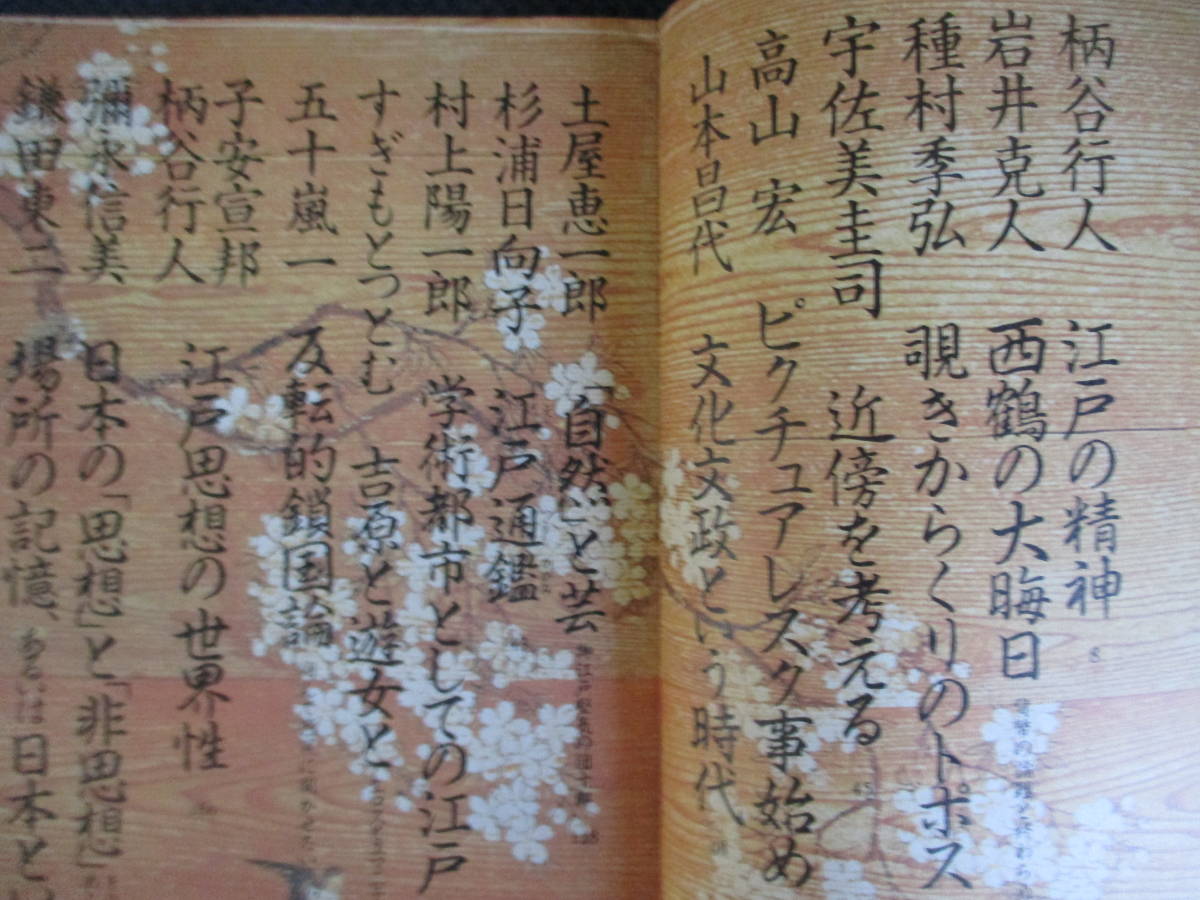 柄谷行人 江戸の精神 8
岩井克人 西鶴の大晦日
種村季弘 覗きからくりのトポス
宇佐美圭司 近傍を考える
高山 宏 ピクチュアレスク事始め
山本昌代 文化文政という時代
土屋恵一郎 「自然」と芸
杉浦日向子 江戸通鑑
村上陽一郎 学術都市としての江戸
すぎもとつとむ 吉原と遊女と
五十嵐一 反転的鎖国論
子安宣邦
柄谷行人 江戸思想の世界性
彌永信美 日本の「思想」と「非思想」
鎌田東二 場所の記憶、あるいは日本とい